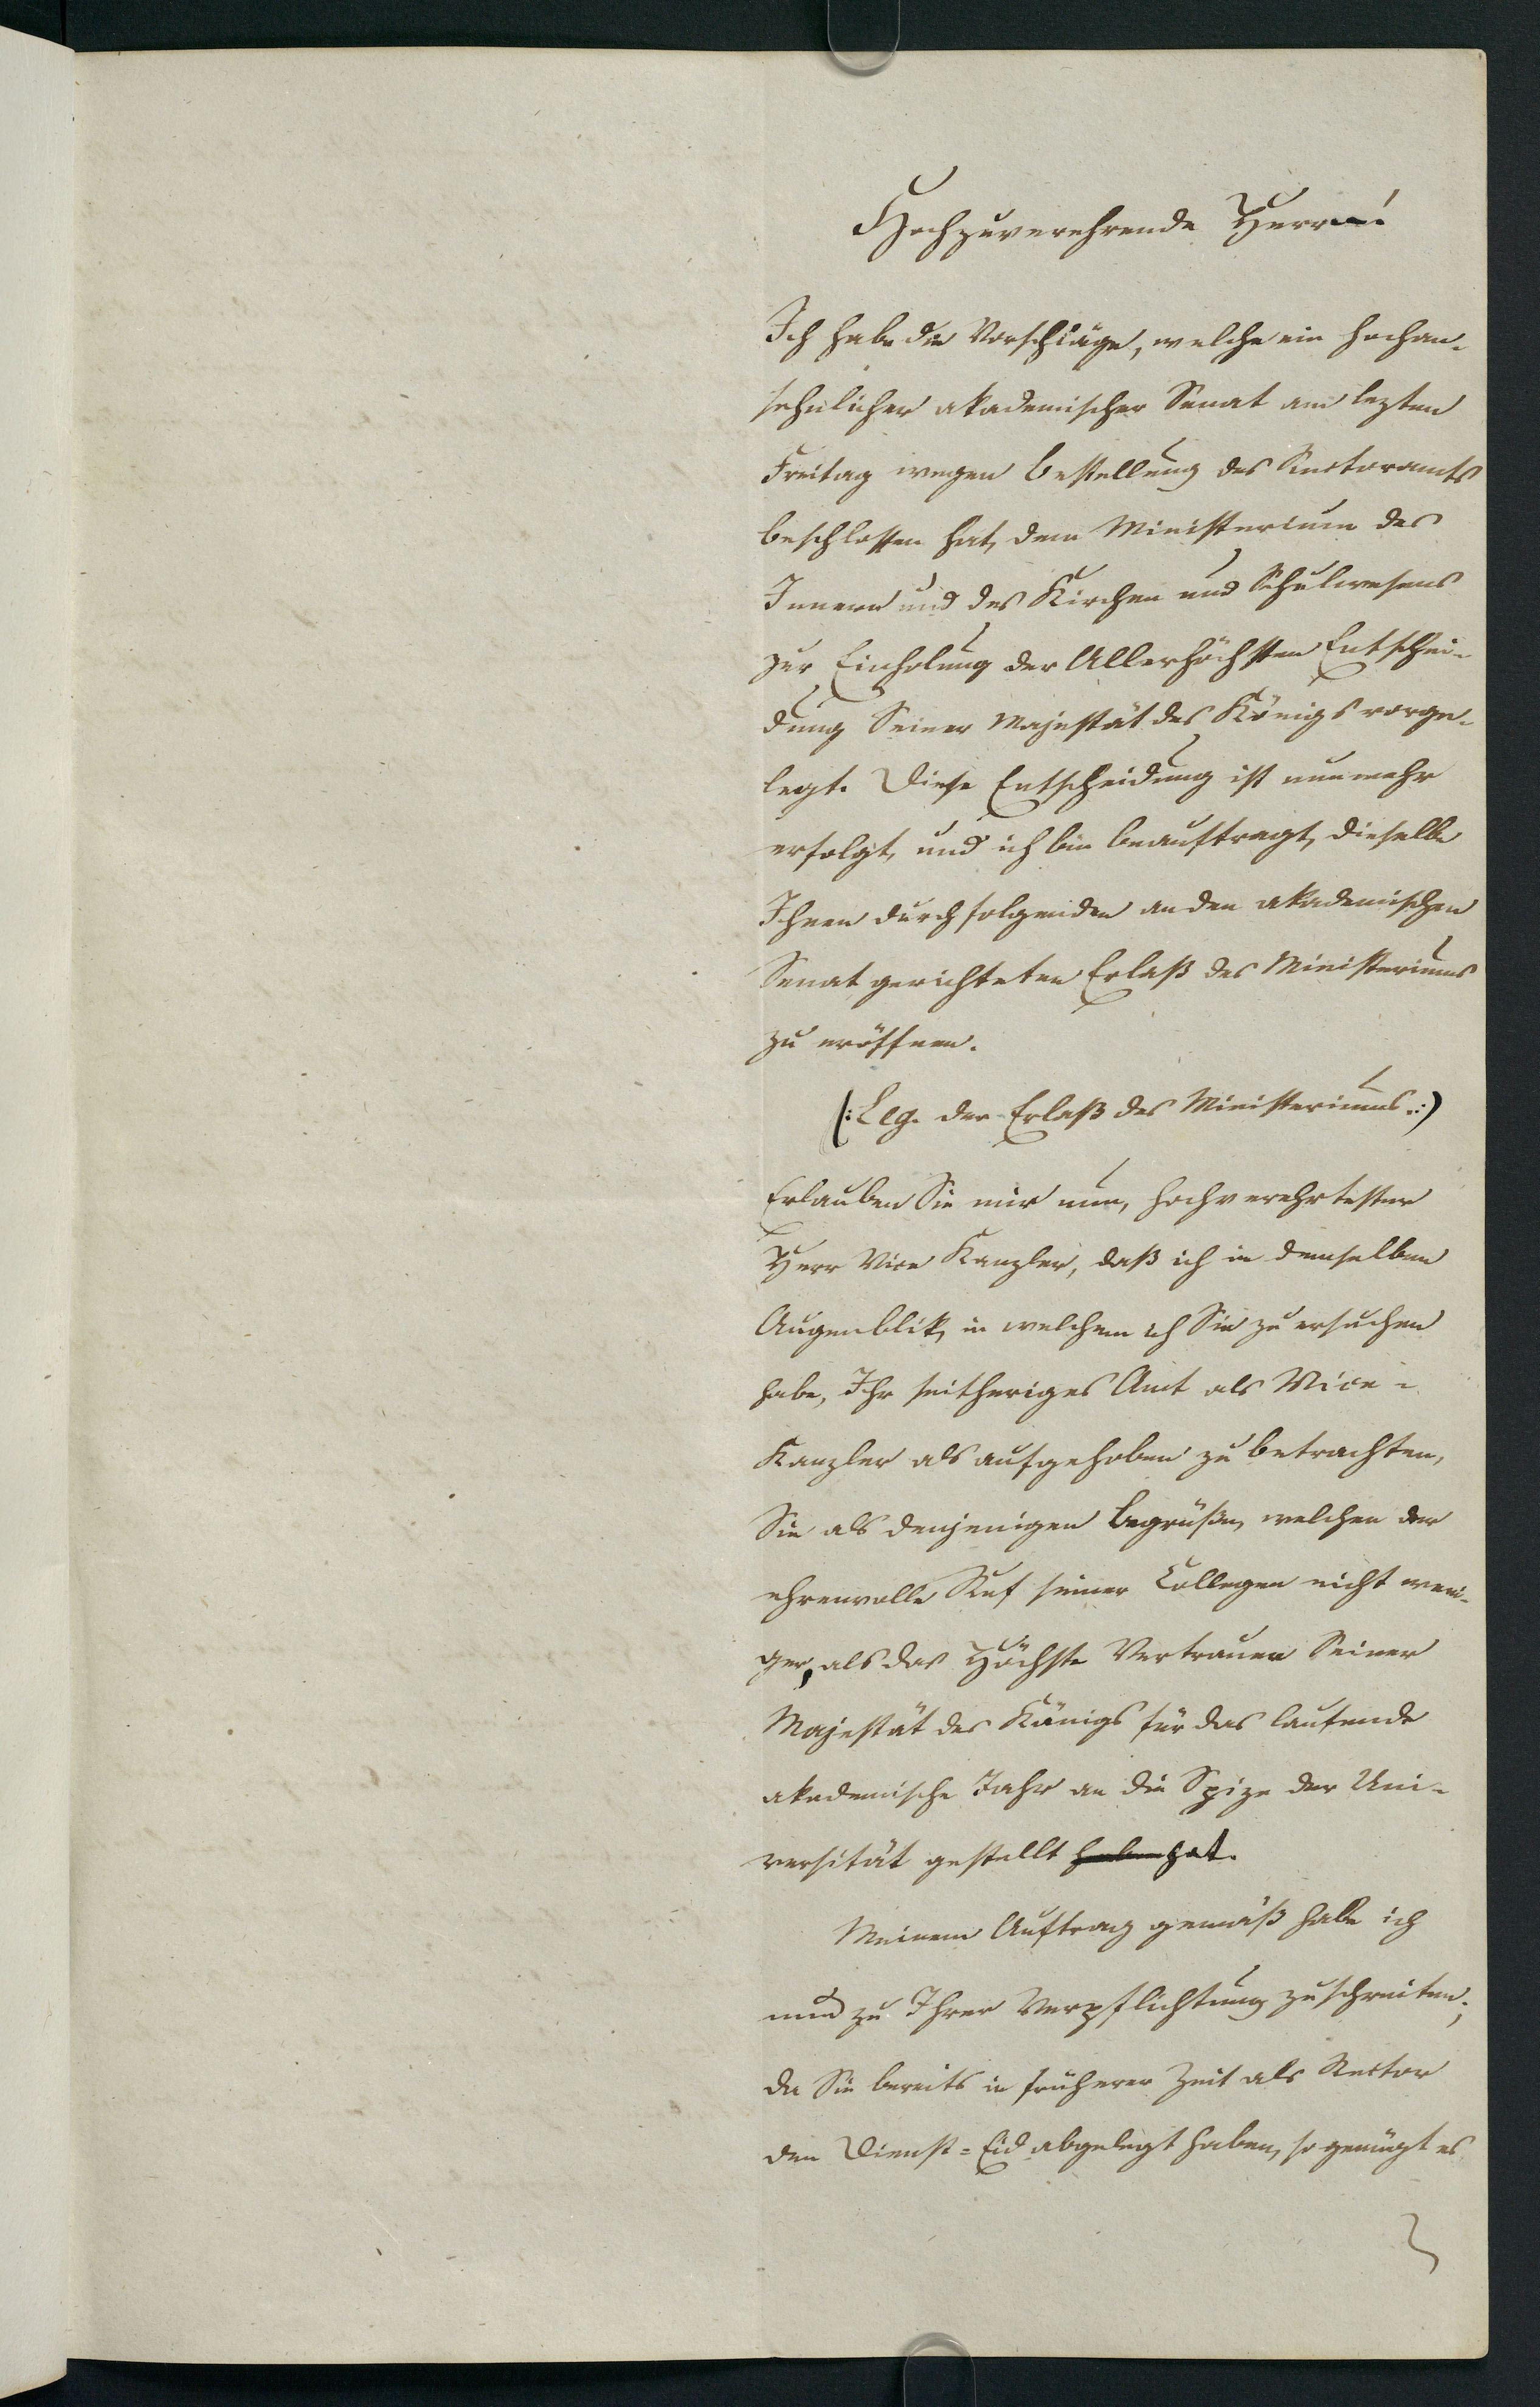 Hochzuverehrende Herrn!
Ich habe die Vorschläge, welche ein hochan-
sehnlicher akademischer Senat am lezten
Freitag wegen Bestellung des Rectoramts
beschlossen hat, dem Ministerium des
Innern und des Kirchen und Schulwesens
zur Einholung der Allerhöchsten Entschei-
dung Seiner Majestät des Königs vorge-
legt. Diese Entscheidung ist nunmehr
erfolgt, und ich bin beauftragt, dieselbe
Ihnen durch folgenden an den akademischen
Senat gerichteten Erlaß des Ministeriums
zu eröffnen.
(: Leg. der Erlaß des Ministeriums. :)
Erlauben Sie mir nun, hochverehrtester
Herr Vice Kanzler, daß ich in demselben
Augenblik, in welchem ich Sie zu ersuchen
habe, Ihr seitheriges Amt als Vice-
Kanzler als aufgehoben zu betrachten,
Sie als denjenigen begrüße, welchen der
ehrenvolle Ruf seiner Collegen nicht weni-
ger, als das Höchste Vertrauen Seiner
Majestät des Königs für das laufende
akademische Jahr an die Spize der Uni-
versität gestellt haben hat.
Meinem Auftrag gemäß habe ich
nun zu Ihrer Verpflichtung zu schreiten;
da Sie bereits in früherer Zeit als Rector
den Dienst=Eid abgelegt haben, so genügt es